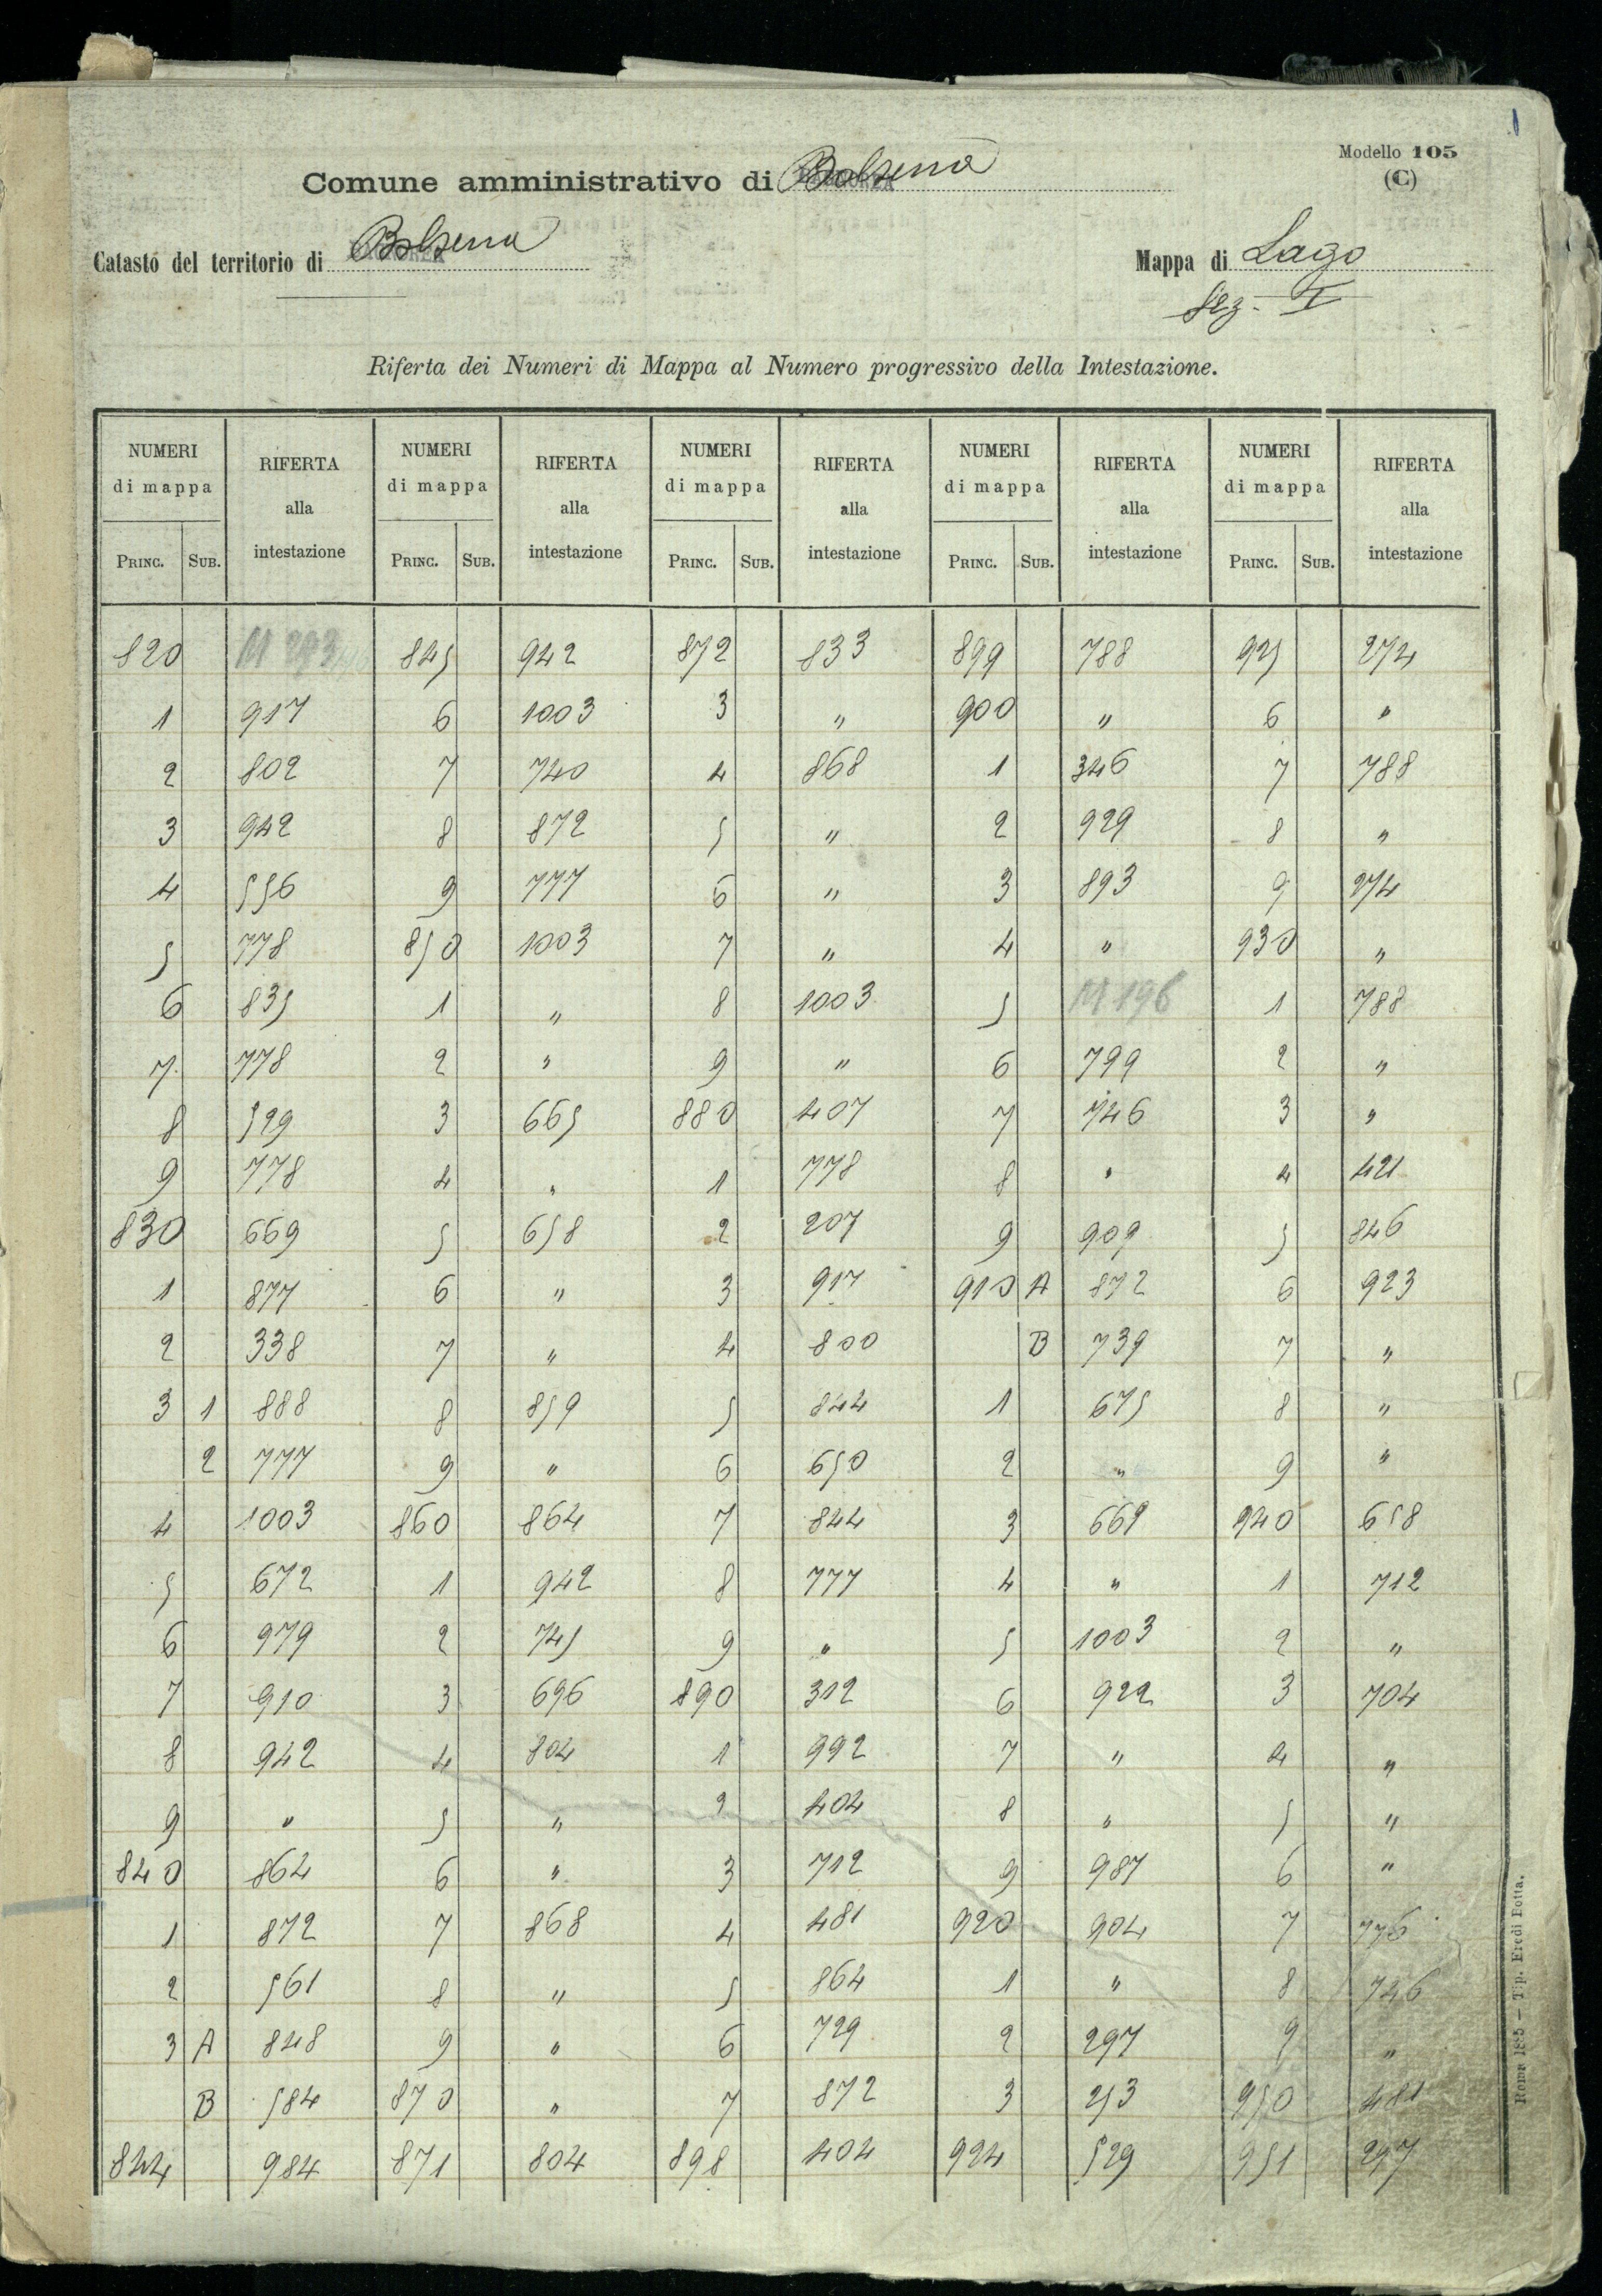 1
Modello 105
(C)
Comune amministrativo di Bolsena
Catasto del territorio di Bolsena Mappa di Lago
Sez. I
Riferta dei Numeri di Mappa al Numero progressivo della Intestazione.
NUMERI di mappa RIFERTA alla intestazione NUMERI di mappa RIFERTA alla intestazione NUMERI di mappa RIFERTA alla intestazione NUMERI di mappa RIFERTA alla intestazione NUMERI di mappa RIFERTA alla intestazione
PRINC. SUB. PRINC. SUB. PRINC. SUB. PRINC. SUB. PRINC. SUB.
820 M 293 845 942 872 833 899 788 925 274
1 917 6 1003 3 " 900 " 6 "
2 802 7 740 4 868 1 346 7 788
3 942 8 872 5 " 2 929 8 "
4 556 9 777 6 " 3 893 9 274
5 778 850 1003 7 " 4 " 930 "
6 835 1 " 8 1003 5 M 196 1 788
7 778 2 " 9 " 6 799 2 "
8 529 3 665 880 407 7 746 3 "
9 778 4 " 1 778 8 " 4 421
830 669 5 658 2 207 9 909 5 846
1 877 6 " 3 917 910 A 872 6 923
2 338 7 " 4 800 B 739 7 "
3 1 888 8 859 5 844 1 675 8 "
2 777 9 " 6 650 2 " 9 "
4 1003 860 864 7 844 3 669 940 658
5 672 1 942 8 777 4 " 1 712
6 979 2 745 9 " 5 1003 2 "
7 910 3 696 890 312 6 922 3 704
8 942 4 804 1 992 7 " 4 "
9 " 5 " 2 404 8 " 5 "
840 864 6 " 3 712 9 987 6 "
1 872 7 868 4 481 920 904 7 776
2 561 8 " 5 864 1 " 8 746
3 A 848 9 " 6 729 2 297 9 "
B 584 870 " 7 872 3 253 950 481
844 984 871 804 898 404 924 529 951 297
Roma 1885 — Tip. Eredi Botta.